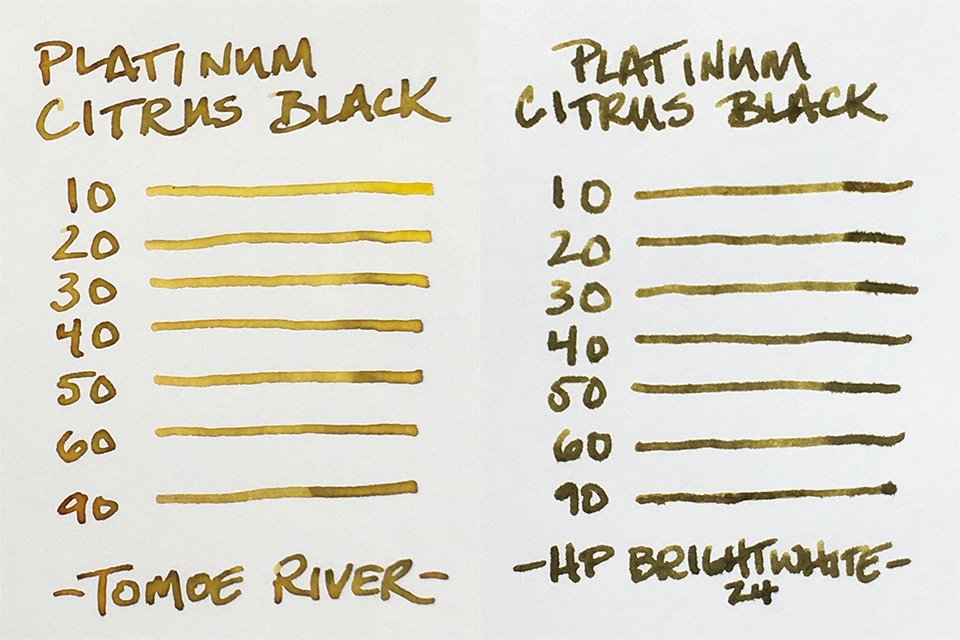 PLATINUM
CITRUS BLACK
10
20
30
40
50
60
90
-TOMOE RIVER-
PLATINUM
CITRUS BLACK
10
20
30
40
50
60
90
-HP BRIGHTWHITE-
24